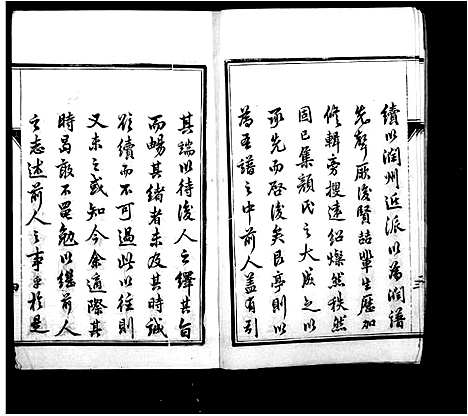 續以潤州近派以為潤譜
先聲厥後賢喆輩生歷加
修輯旁搜遠紹燦然秩然
固已集顏氏之大成之以
承先而啓後矣長亭則以
為吾譜之中前人蓋有引
其端以待後人之繹其旨
而暢其緒者未及其時誠
欲續而不可過此以往則
又未之或知今余適際其
時曷敢不黽勉以繼前人
之志述前人之事乎於是